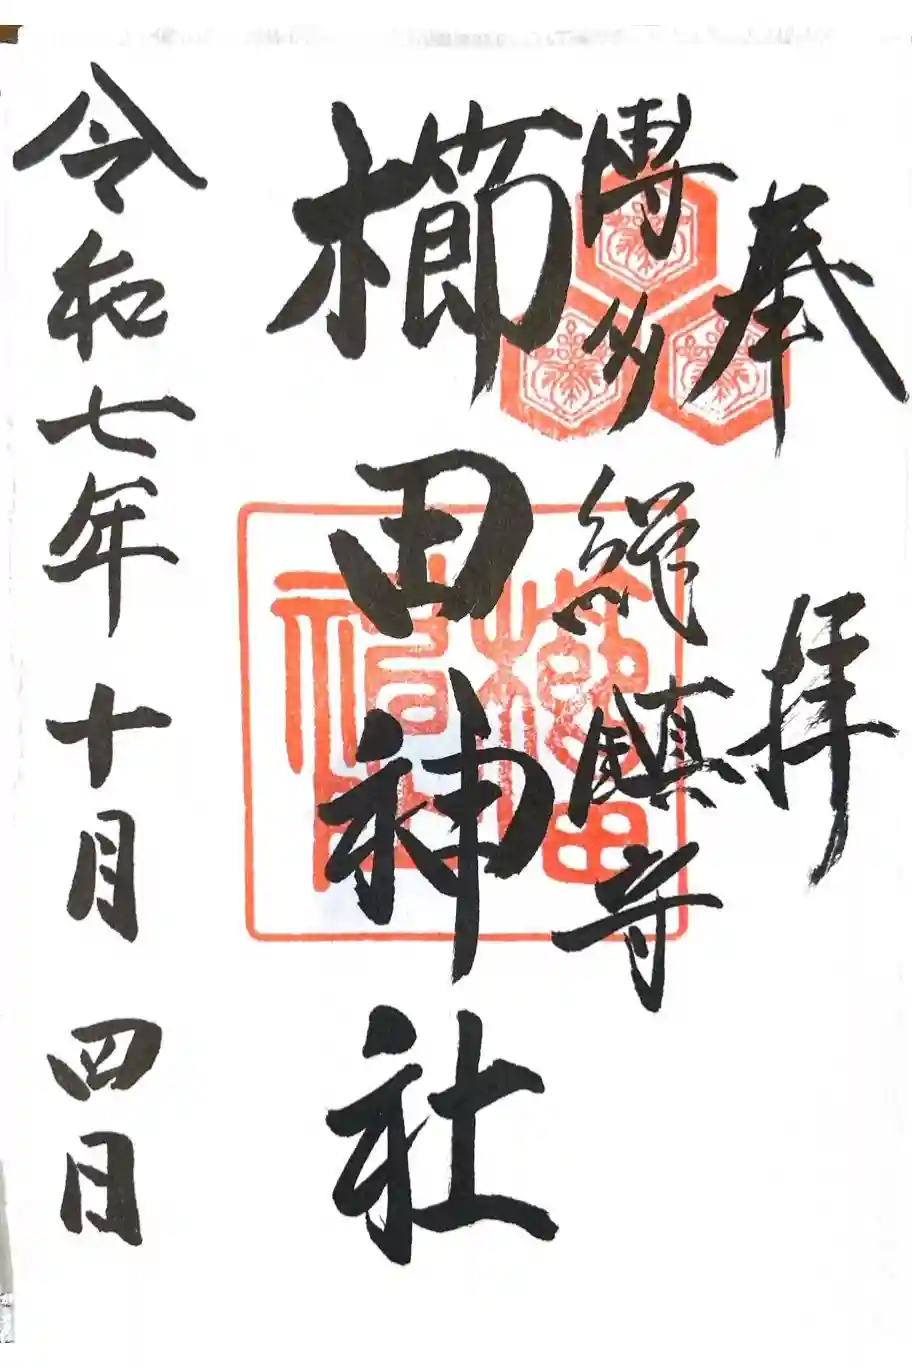 奉拝
博多総鎮守
櫛田神社
令和七年十月四日
櫛田
神社